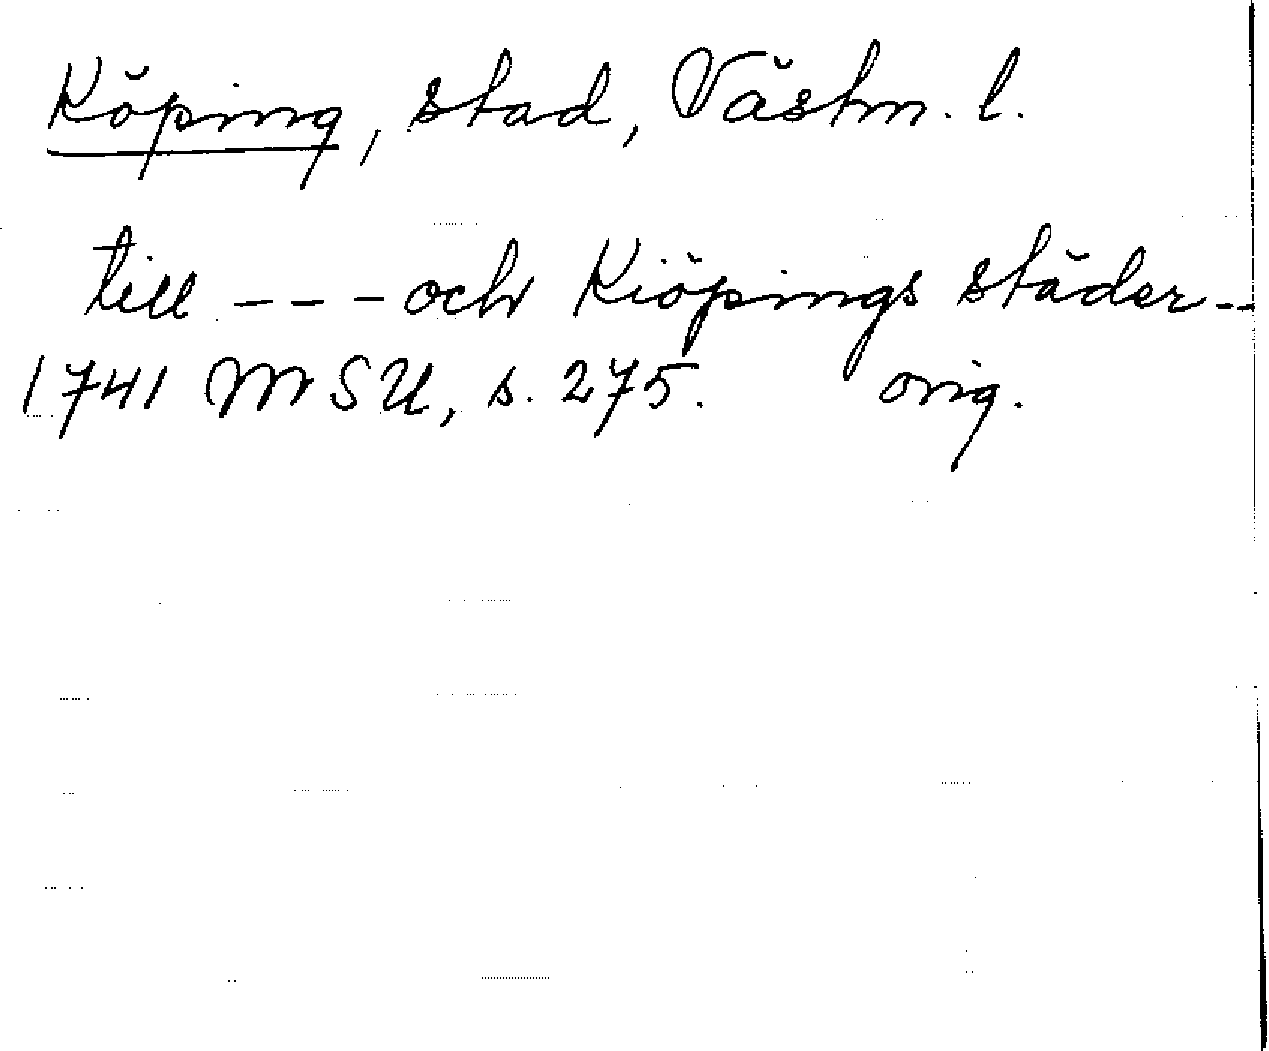 Köping, stad, Västm. l.
till - - - och Kiöpings städer - -
1741 MSU, s. 275. orig.